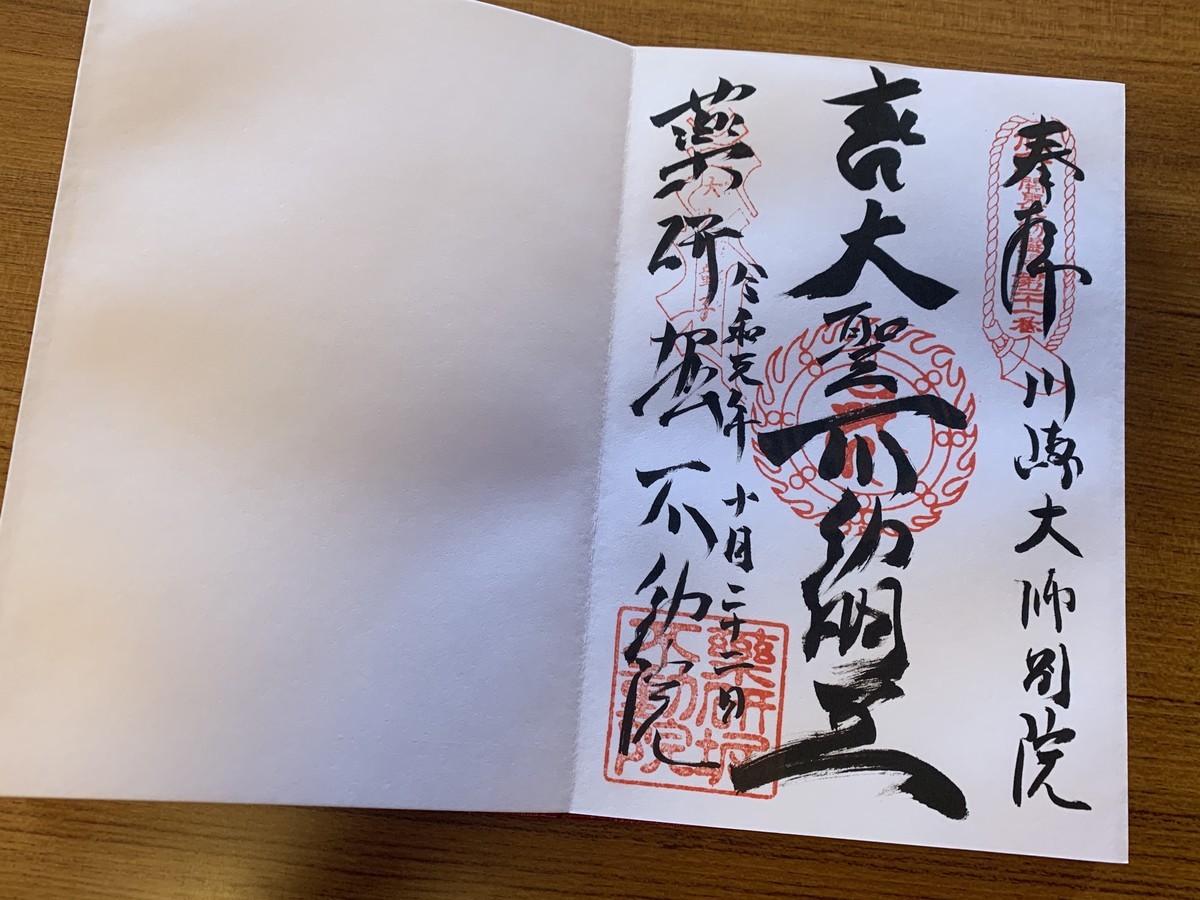 奉拝 川崎大師別院
大聖不動明王
令和元年 十月二十二日
薬研堀不動院
薬研堀
不動院